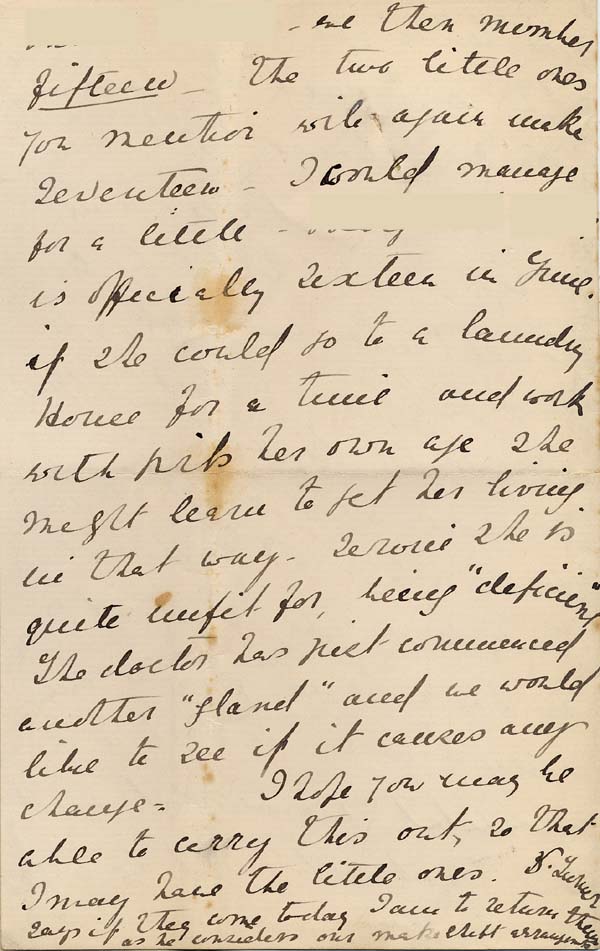 then number
fifteen - The two little ones
you mention will again make
seventeen - I would manage
for a little -
is officially sixteen in June.
if she could go to a laundry
Home for a time and work
with girls her own age she
might learn to get her living
in that way - Service she is
quite unfit for, being "deficient"
The doctor has just commenced
another "gland" and we would
like to see if it causes any
change - I hope you may be
able to carry this out, so that
I may have the little ones. Dr. Turner
says if they come today I am to return them
as he considers our makeshift arrangements